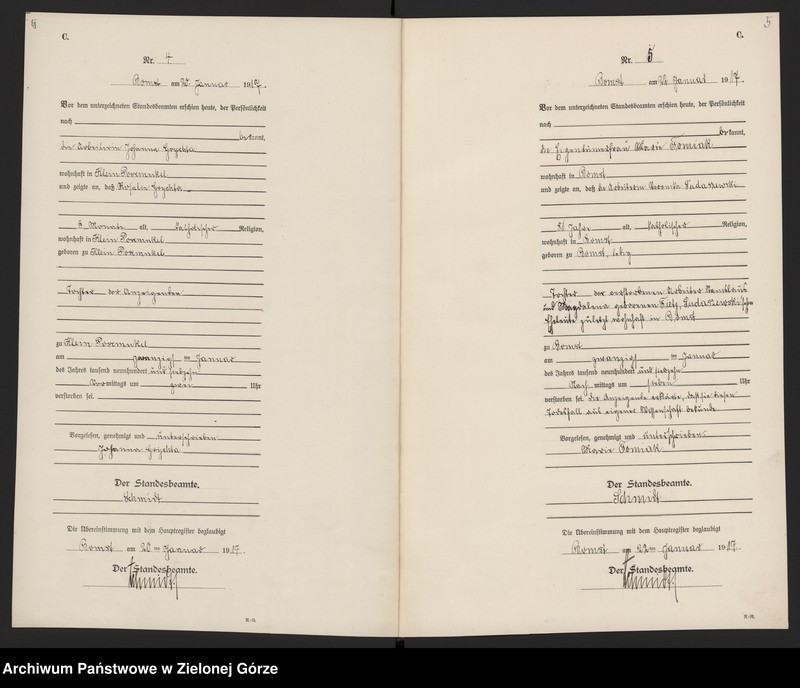 4
C.
Nr. 4
Bomst am 20. Januar 1917.
Vor dem unterzeichneten Standesbeamten erschien heute, der Persönlichkeit
nach
bekannt,
die Arbeiterin Johanna
wohnhaft in Klein Posemukel
und zeigte an, daß Rosalie
6 Monate alt, katholischer Religion,
wohnhaft in Klein Posemukel
geboren zu Klein Posemukel
Tochter der Anzeigenden
zu Klein Posemukel
am zwanzigsten Januar
des Jahres tausend neunhundert und siebzehn
Vormittags um zwei Uhr
verstorben sei.
Vorgelesen, genehmigt und unterschrieben
Johanna
Der Standesbeamte.
Schmidt
Die Übereinstimmung mit dem Hauptregister beglaubigt
Bomst am 20ten Januar 1917.
Der Standesbeamte.
Schmidt
5
C.
Nr. 5
Bomst am 22. Januar 1917.
Vor dem unterzeichneten Standesbeamten erschien heute, der Persönlichkeit
nach
bekannt,
die Eigentümerfrau Marie Tomiak
wohnhaft in Bomst
und zeigte an, daß die Arbeiterin Veronika
Jahre alt, katholischer Religion,
wohnhaft in Bomst
geboren zu Bomst, ledig
Tochter der verstorbenen Arbeiter
und Magdalena geborenen
Eheleute zuletzt wohnhaft in Bomst
zu Bomst
am zwanzigsten Januar
des Jahres tausend neunhundert und siebzehn
Nachmittags um sieben Uhr
verstorben sei. Die Anzeigende erklärte, daß sie diesen
Todesfall aus eigener Wissenschaft bekunde.
Vorgelesen, genehmigt und unterschrieben
Marie Tomiak
Der Standesbeamte.
Schmidt
Die Übereinstimmung mit dem Hauptregister beglaubigt
Bomst am 22ten Januar 1917.
Der Standesbeamte.
Schmidt
Archiwum Państwowe w Zielonej Górze